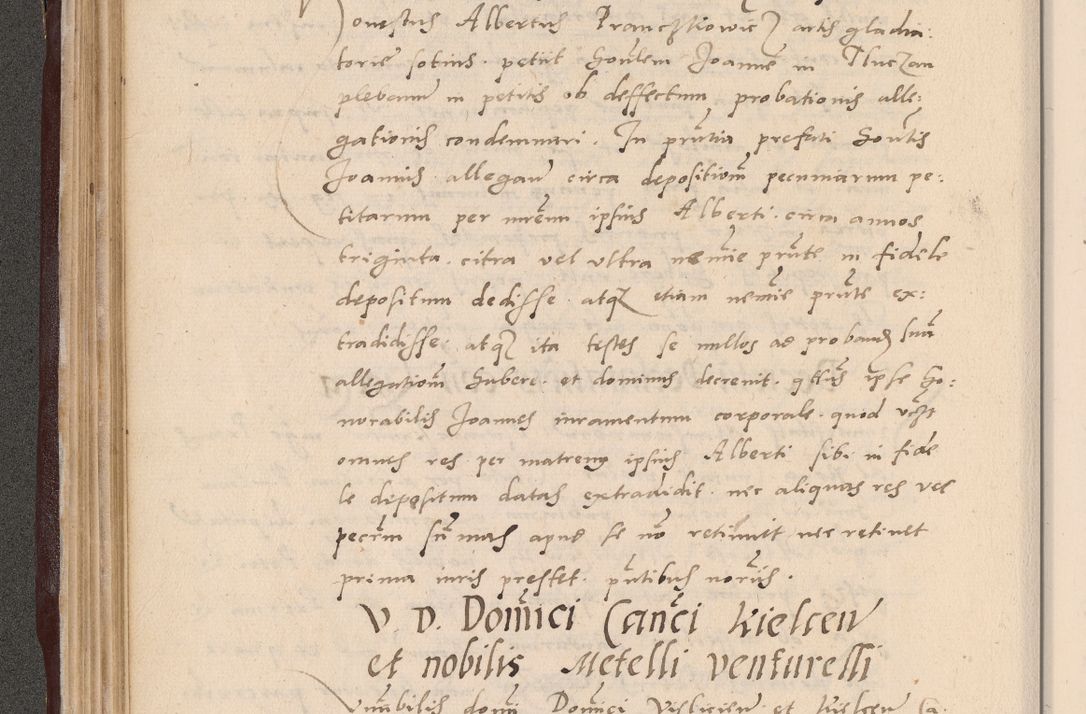 Honestus Albertus Francζkowicz artis gladia:
torie sotius petiit Hon̄lem Joannē in Tluczan
plebanū in petitis ob deffectum probationis alle:
gationis condemnari. In pn̄tia prefati Hon̄lis
Joannis allegan̄ circa depositionē pecuniarum pe:
titarum per mrēm ipsius Alberti circa annos
triginta citra vel ultra nemine pn̄te in fidele
depositum dedisse atqz etiam nemine pn̄te ex:
tradidisse atqz ita testes se nullos ad proband suā
allegationē habere et dominus decrevit ipse Ho:
norabilis Joannes iuramentum corporale quod
omnes res per matrem ipsius Alberti sibi in fide
le depositum datas extradidit nec aliquas res vel
pecūm sūmas apud se nō retinuit nec retinet
prima iuris prestet pn̄tibus
V. D. Dominici Canci kielcen
et nobilis Metelli venturelli
Venēbilis domi Dominici Visliciēn et kielcen Ca: